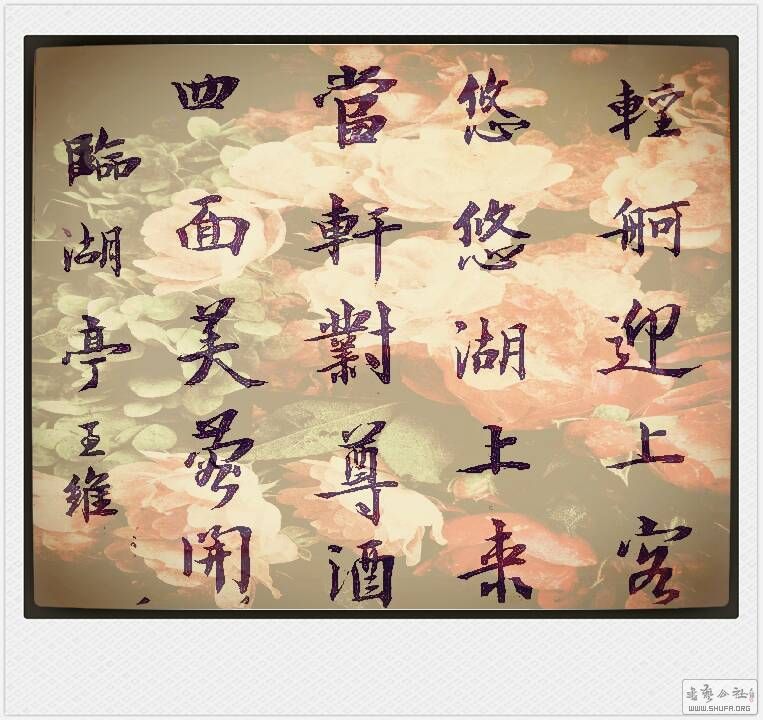 輕舸迎上客
悠悠湖上來
當軒對尊酒
四面芙蓉開
臨湖亭
王維
書藝公社
WWW.SHUFA.ORG